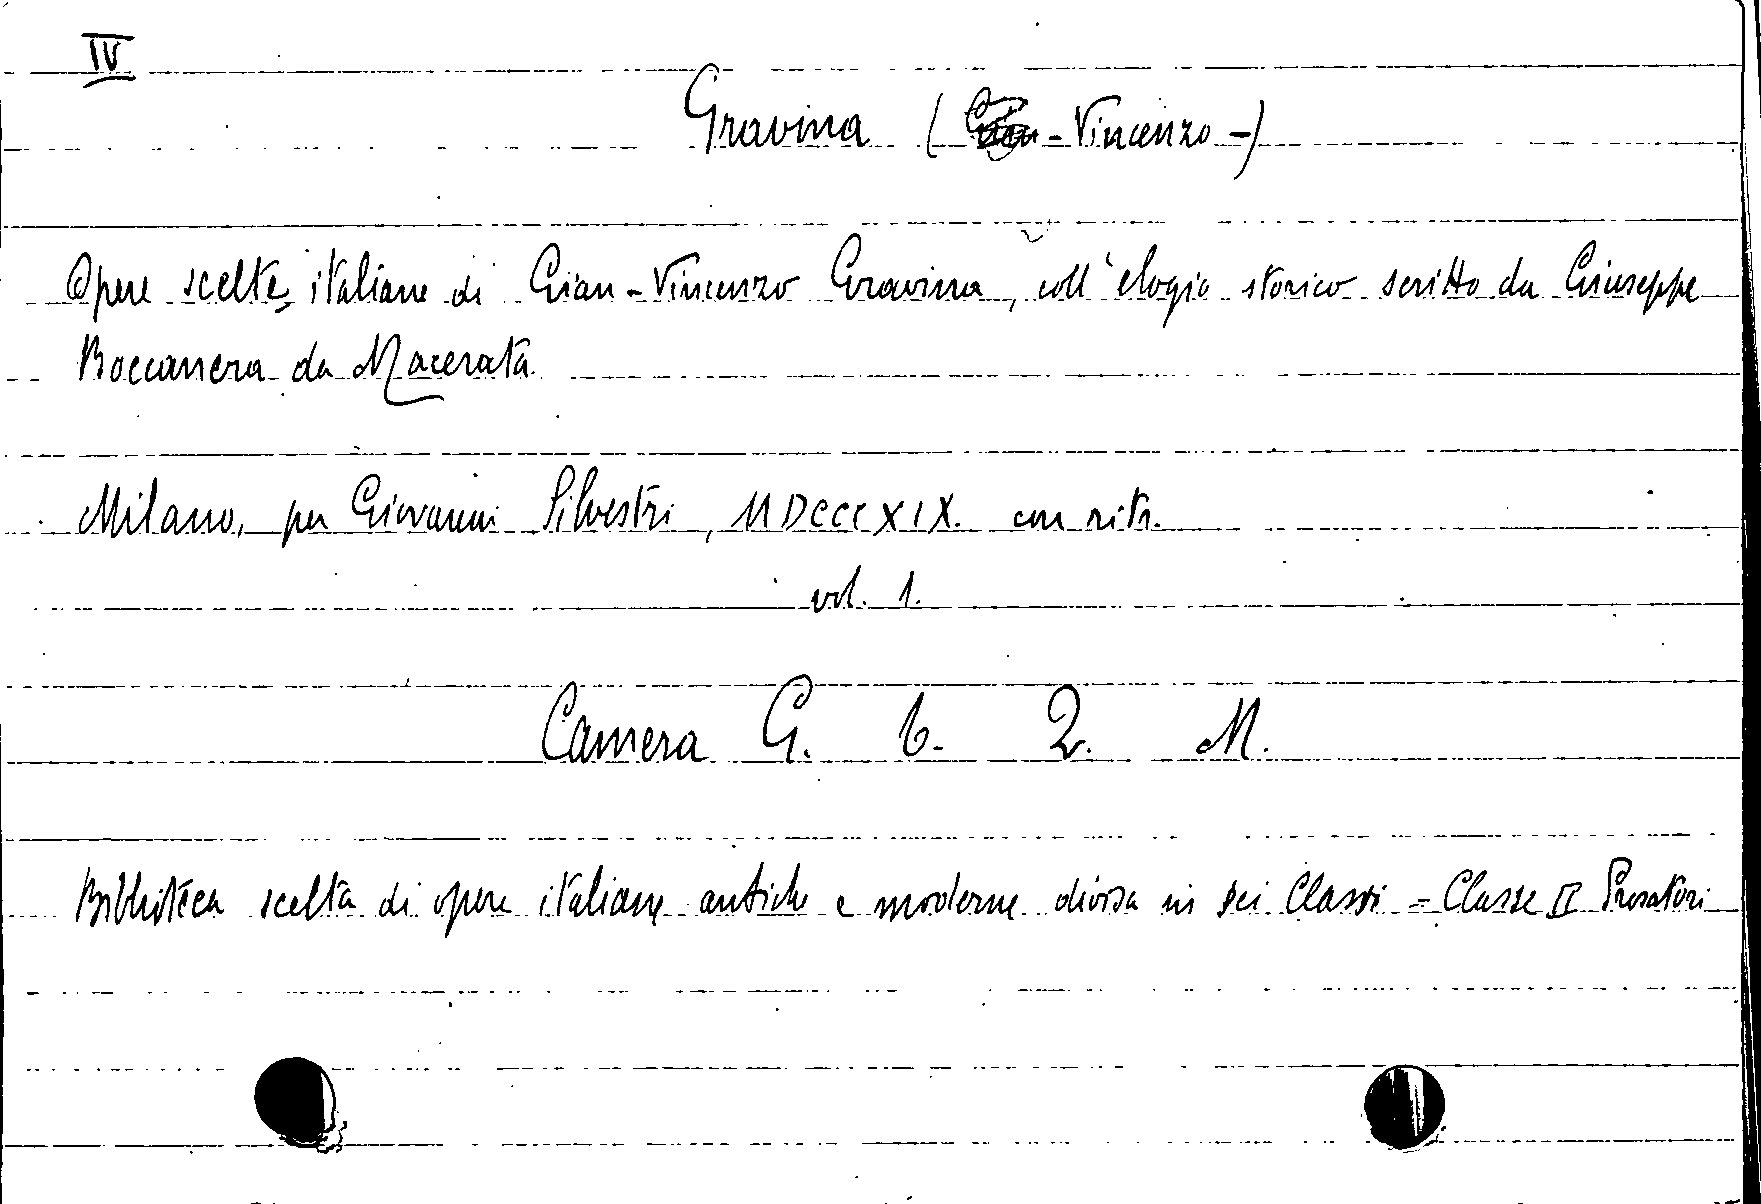 IV
Gravina (Gian-Vincenzo-)
Opere scelte italiane di Gian-Vincenzo Gravina, coll'elogio storico scritto da Giuseppe
Boccanera da Macerata
Milano, per Giovanni Silvestri, MDCCCXIX. con ritr.
vol. 1.
Camera G. b. 2. M.
Biblioteca scelta di opere italiane antiche e moderne divisa in sei Classi = Classe II Prosatori